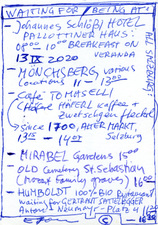 WAITING FOR / BEING AT:
Johannes Schlößl HOTEL
PALLOTTINER HAUS:
08:00 10:00 BREAKFAST ON
13 IX 2020 VERANDA
MÖNCHSBERG, various
locations 11 - 13:00
Café TOMASELLI
HÄFERL Kaffee +
Zwetschgenfleck
since 1700, ALTER MARKT,
13:- 14:- Salzburg
MIRABEL Gardens 15:00
OLD Cemetery St. Sebastian
(Mozart Family graves) 16:00
HUMBOLDT 100% BIO Restaurant
waiting for GERTRAUD
Antonio Neumayr-Platz 4
ALL SALZBURG